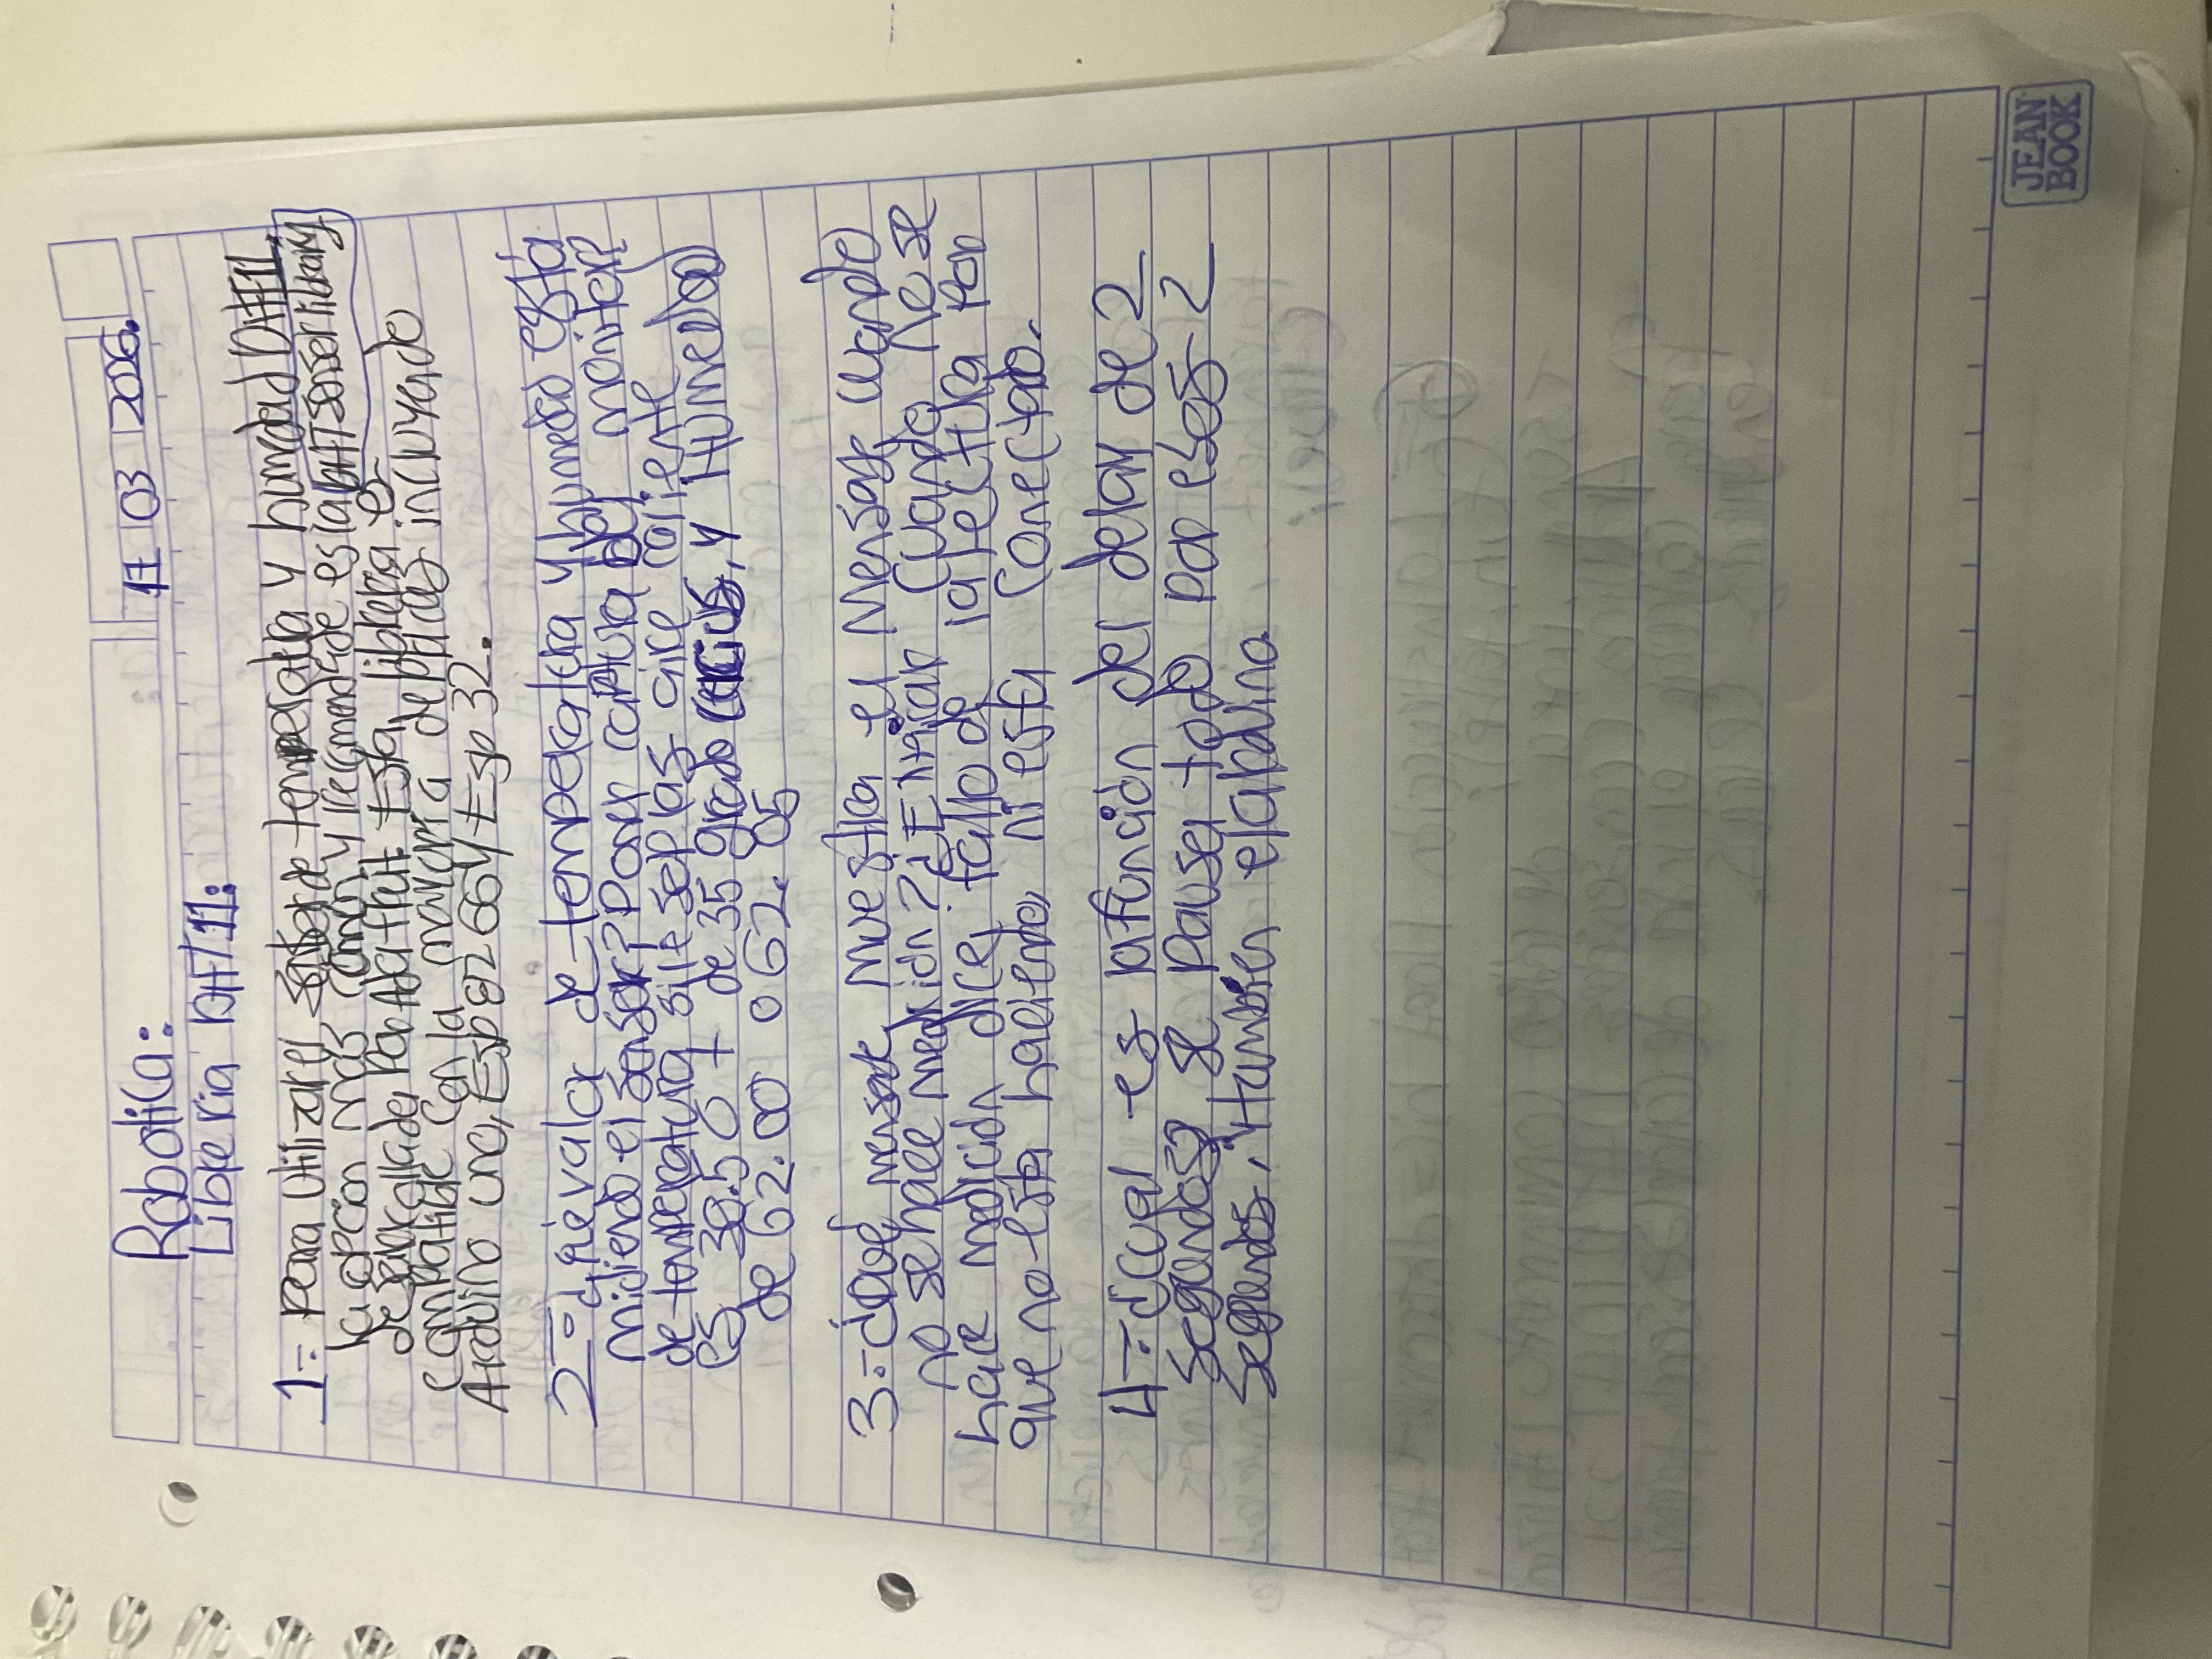 17 03 2026.
Robotica:
Libreria DHT11:
1-: Para Utilizar el de temperatura y humedad DHT11,
la opción más común y recomendade es la DHT sensor library
desarrollada por Adafruit. Esta libreria es
compatible con la mayoría de placas incluyendo
Arduino uno, Esp8266 y Esp32.
2-: ¿que valor de temperatura y humedad está
midiendo el sensor? Poner captura del monitor?
de temperatura si le soplas aire caliente
es 38.50 + de 35 grado celcius, y Humedad
de 62.00 o 62.05
3-: ¿Qué mensaje muestra el mensaje cuando
no se hace medición? ¿Enviar Cuando no se
hace medición dice, fallo de la lectura por
que no esta haciendo, ni esta Conectado.
4-: ¿Cual es la función del delay de 2
segundos? se pausa todo por esos 2
segundos, también el arduino.
JEAN
BOOK